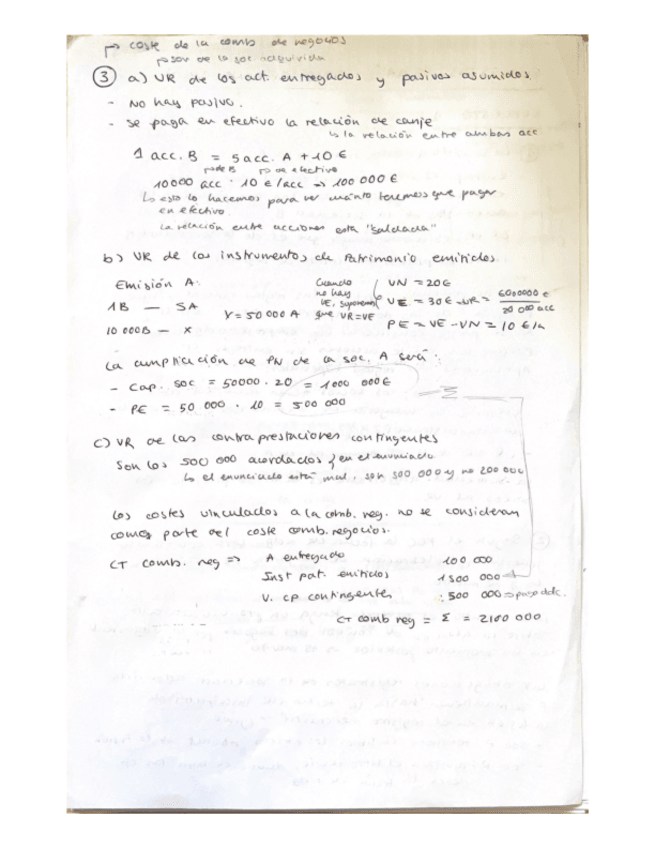 ↱ coste de la comb de negocios
↱ son de la soc adquirida
③ a) VR de los act. entregados y pasivos asumidos.
- No hay pasivo.
- se paga en efectivo la relación de canje
↳ la relación entre ambas acc
1 acc. B = 5 acc. A + 10 €
↱ de B ↱ de efectivo
10000 acc · 10 €/acc ⇒ 100 000 €
↳ esto lo hacemos para ver cuánto tenemos que pagar
en efectivo.
la relación entre acciones esta "saldada"
b) VR de los instrumentos de Patrimonio emitidos
Emisión A:
1B — 5A
10 000B — x
X = 50 000 A
Cuando
no hay
VE, suponemos
que VR=VE
VN = 20€
VE = 30€ → VR = 6000000 € / 20 000 acc
PE = VE - VN = 10 €/a
La ampliación de PN de la soc. A será:
- Cap. soc = 50000 · 20 = 1000 000€
- PE = 50 000 · 10 = 500 000
c) VR de las contraprestaciones contingentes
Son los 500 000 acordados en el enunciado
↳ el enunciado está mal, son 500 000 y no 200 000
Los costes vinculados a la comb. neg. no se consideran
como parte del coste comb. negocios.
CT comb. neg ⇒ A entregado 100 000
Inst pat. emitidos 1500 000
V. CP contingentes 500 000 ⇒ pago
CT comb neg = Σ = 2100 000